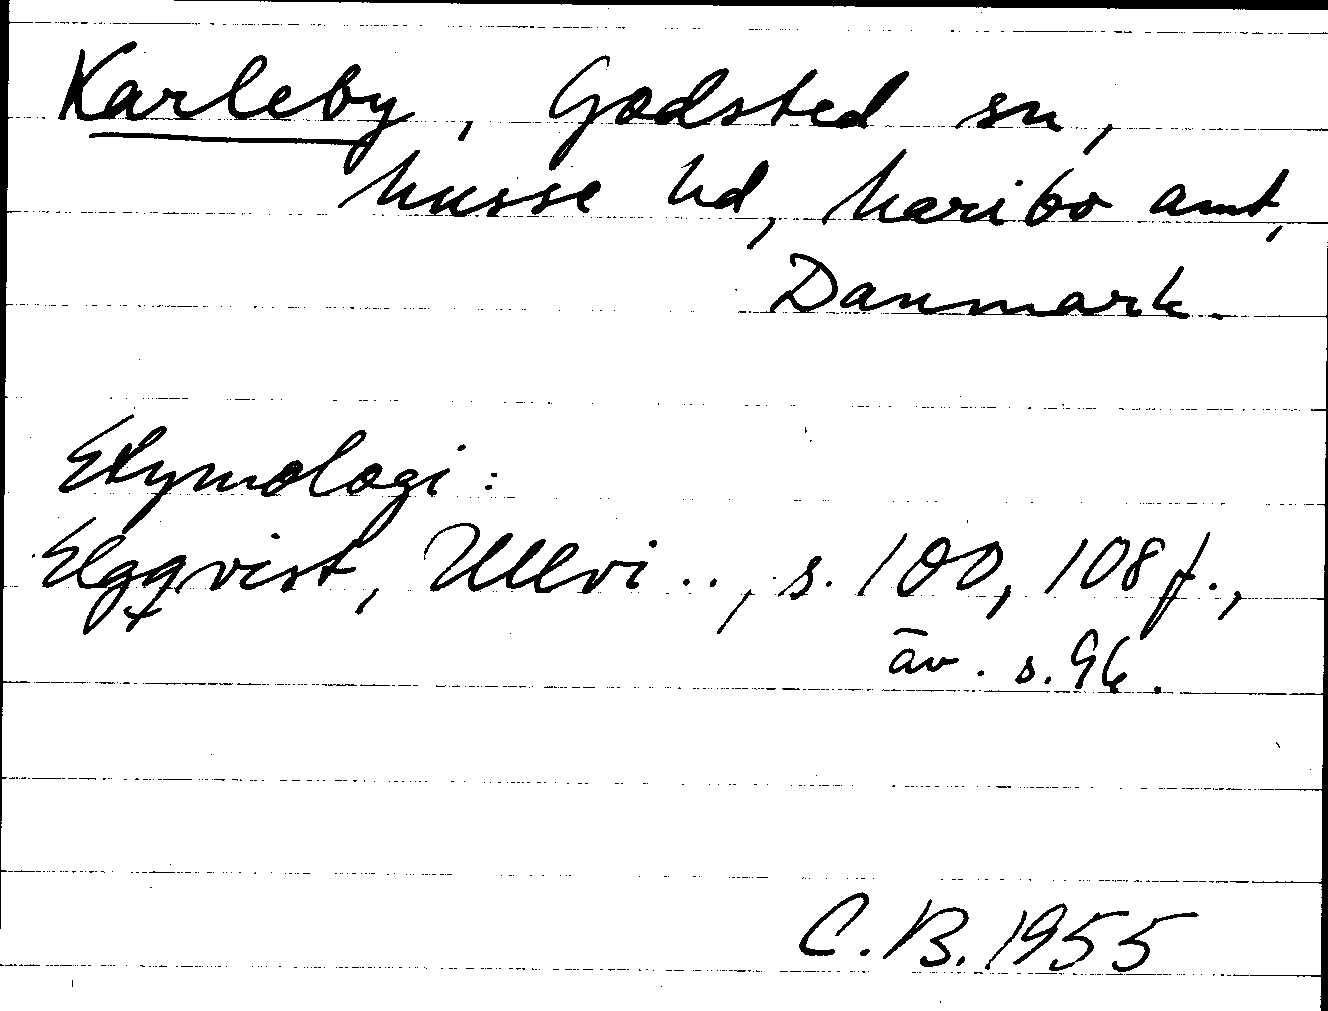 Karleby, Godsted sn,
Musse hd, Maribo amt,
Danmark.
Etymologi:
Elgqvist, Ullvi.., s. 100, 108 f.,
äv. s. 96.
C.B. 1955